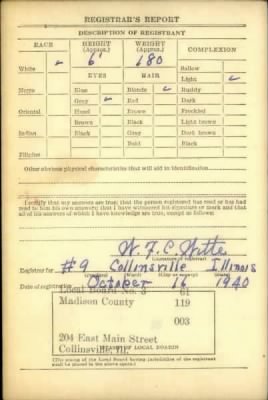 REGISTRAR'S REPORT
DESCRIPTION OF REGISTRANT
RACE HEIGHT (Approx.) WEIGHT (Approx.) COMPLEXION
6' 180
White ✓ Sallow
EYES HAIR Light ✓
Negro Blue Blonde ✓ Ruddy
Gray ✓ Red Dark
Oriental Hazel Brown Freckled
Brown Black Light brown
Indian Black Gray Dark brown
Bald Black
Filipino
Other obvious physical characteristics that will aid in identification
I certify that my answers are true; that the person registered has read or has had
read to him his own answers; that I have witnessed his signature or mark and that
all of his answers of which I have knowledge are true, except as follows:
(Signature of registrar)
Registrar for #9 Collinsville Illinois
Date of registration October 16 1940
Local Board No. 3 61
Madison County 119
003
204 East Main Street
Collinsville, Ill.
(The stamp of the Local Board having jurisdiction of the registrant
shall be placed in the above space)